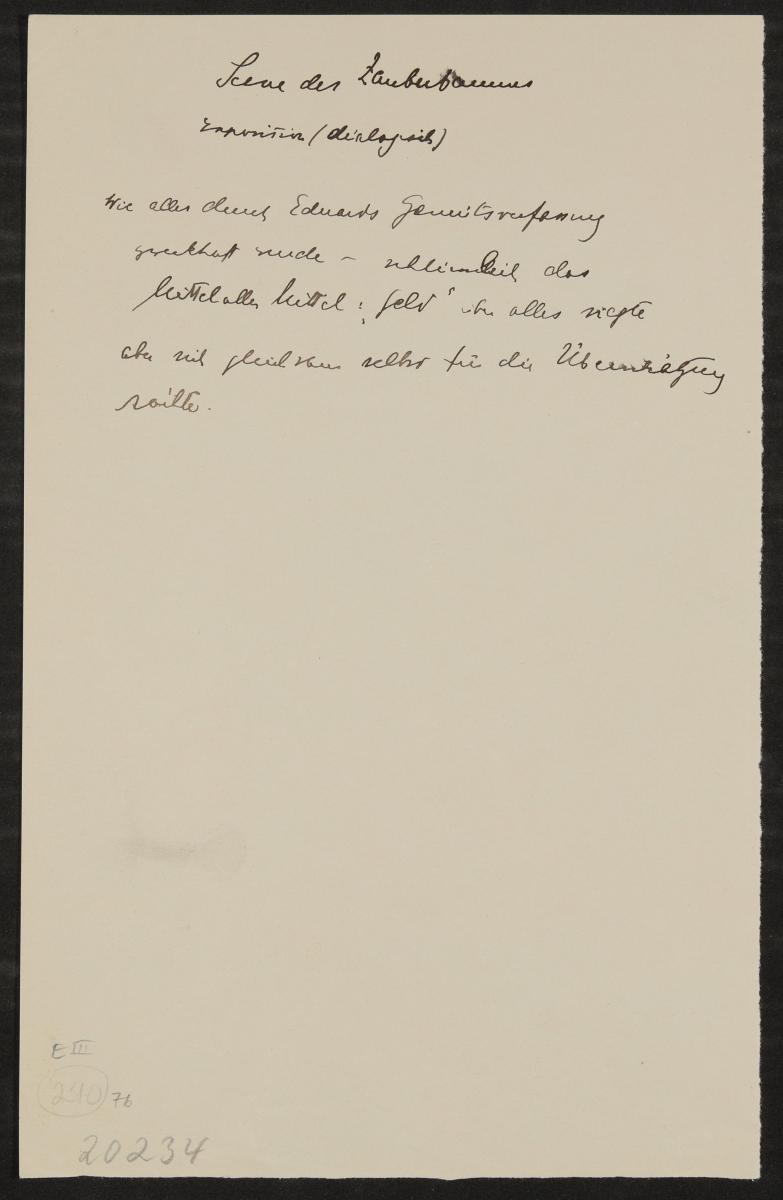 Scene des Zauberbaumes
Exposition (dialogisch)
Wie alles durch Eduards Gemütsverfassung
zweckhaft wurde – schliesslich das
Mittel aller Mittel: „Geld" über alles siegte
aber sich gleichsam selbst für die
rächte.
E III
240 76
20234